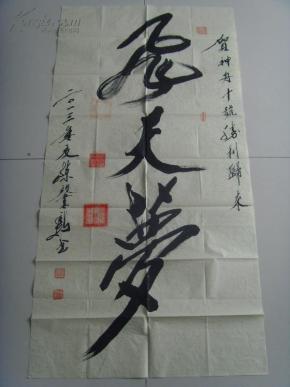 賀神舟十號勝利歸來
飛天夢
二〇一三年夏